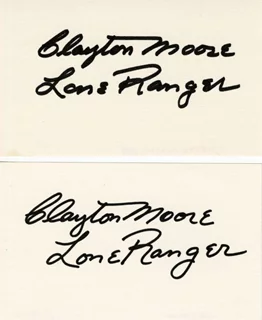 Clayton Moore
Lone Ranger
Clayton Moore
Lone Ranger